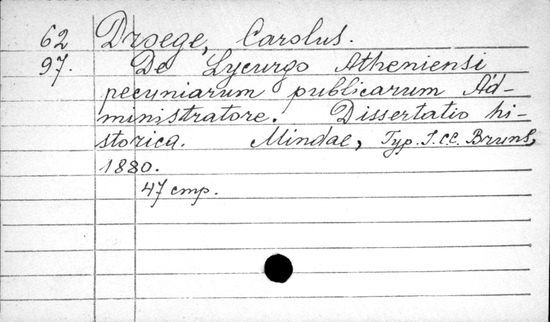 62 Droege, Carolus.
97. De Lycurgo Atheniensi
pecuniarum publicarum Ad-
ministratore. Dissertatio hi-
storica. Mindae, Typ. J. CC. Bruns,
1880.
47 cmp.